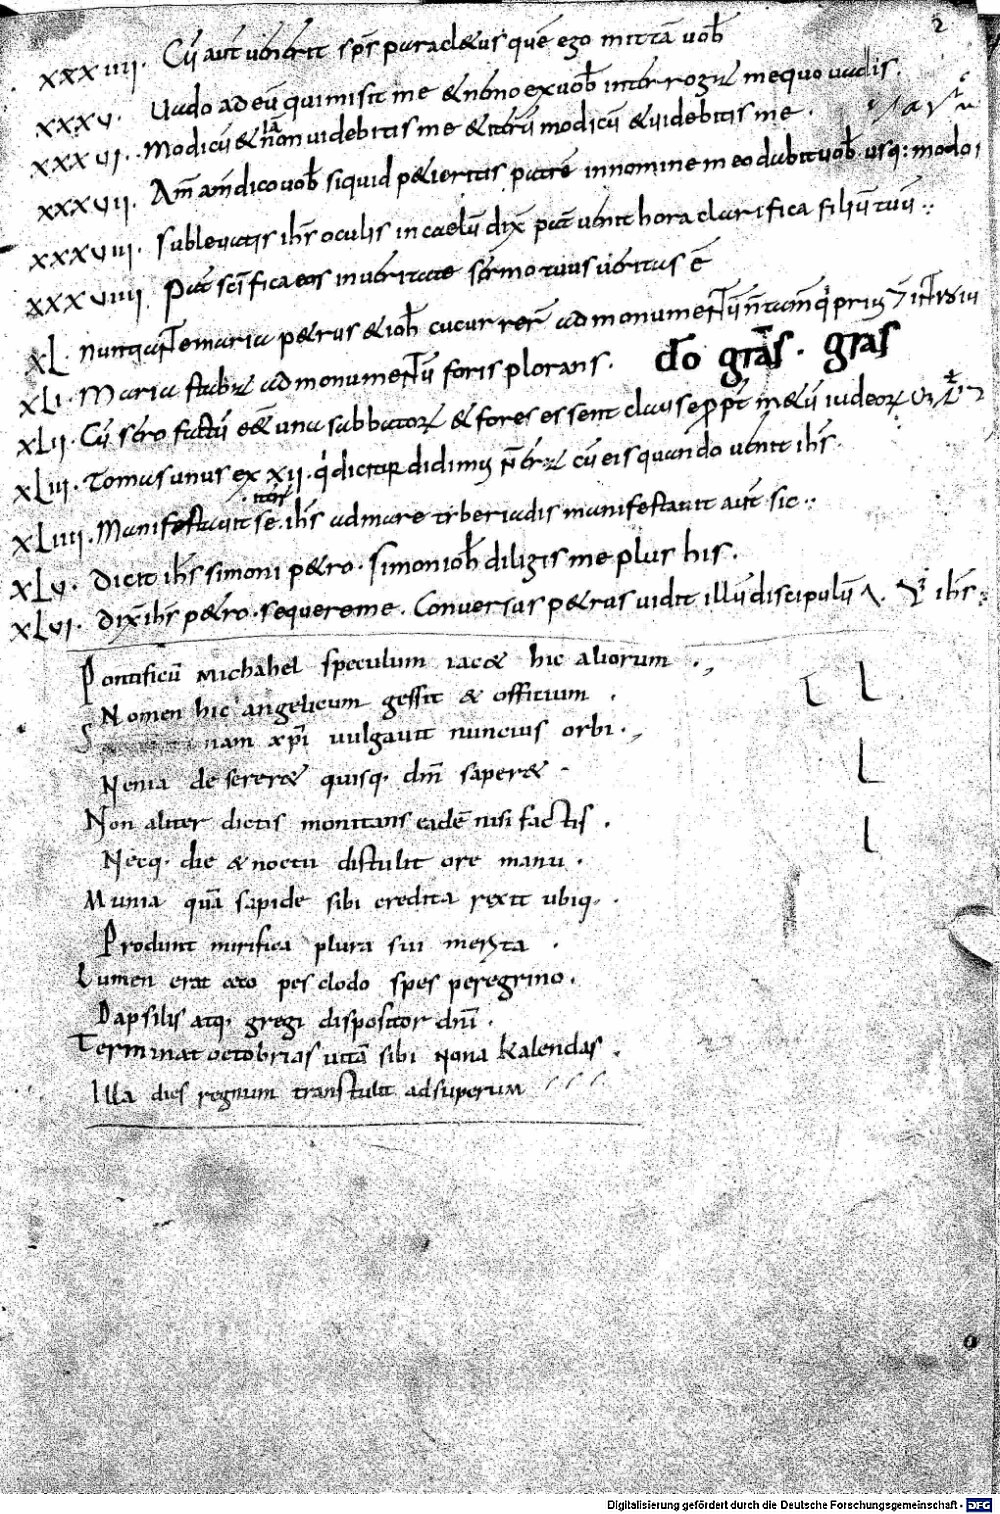 2
xxxiiii. Cū aūt uenerit sp̄s paracletus quē ego mittā uob̄
xxxv. Uado ad eū qui misit me & nemo ex uob̄ interrogat me quo uadis.
xxxvi. Modicū & iā non uidebitis me & iterū modicū & uidebitis me.
xxxvii. Am̄ am̄ dico uob̄ siquid petieritis patrē in nomine meo dabit uob̄ usq: modo
xxxviii. Subleuatis ih̄s oculis in caelū dix̄ pat̄ uenit hora clarifica filiū tuū
xxxviiii. Pat̄ scīfica eos in ueritate sermo tuus ueritas ē
xL. petrus & ioh̄ cucurrer̄ ad monumentū
xLi. Maria stabat ad monumentū foris plorans. dō grās. gras
xLii. Cū sero factū eēt una sabbatorꝝ & fores essent clause ꝓpt̄ metū iudeorꝝ
xLiii. Tomas unus ex xii. q̇ dicitur didimus n̄ erat cū eis quando uenit ih̄s.
xLiiii. Manifestauit se iterū ih̄s ad mare tiberiadis manifestauit aūt sic
xLv. Dicit ih̄s simoni petro. simon ioh̄ diligis me plus his.
xLvi. Dix̄ ih̄s petro. sequere me. Conuersus petrus uidit illū discipulū ih̄s
Pontificū Michahel speculum iacet hic aliorum
Nomen hic angelicum gessit & offitium.
nam xp̄i uulgauit nuncius orbi.
Nenia desereret quisq. dn̄i saperet
Non aliter dictis monitans eadē nisi factis.
Necq. die & noctu distulit ore manu.
Munia quā sapide sibi credita rexit ubiq.
Produnt mirifica plura sui merita.
Lumen erat ceco pes clodo spes peregrino.
Dapsilis atq. gregi dispositor dn̄i.
Terminat octobrias uitā sibi nona kalendas.
Illa dies regnum transtulit ad superum
Digitalisierung gefördert durch die Deutsche Forschungsgemeinschaft - DFG